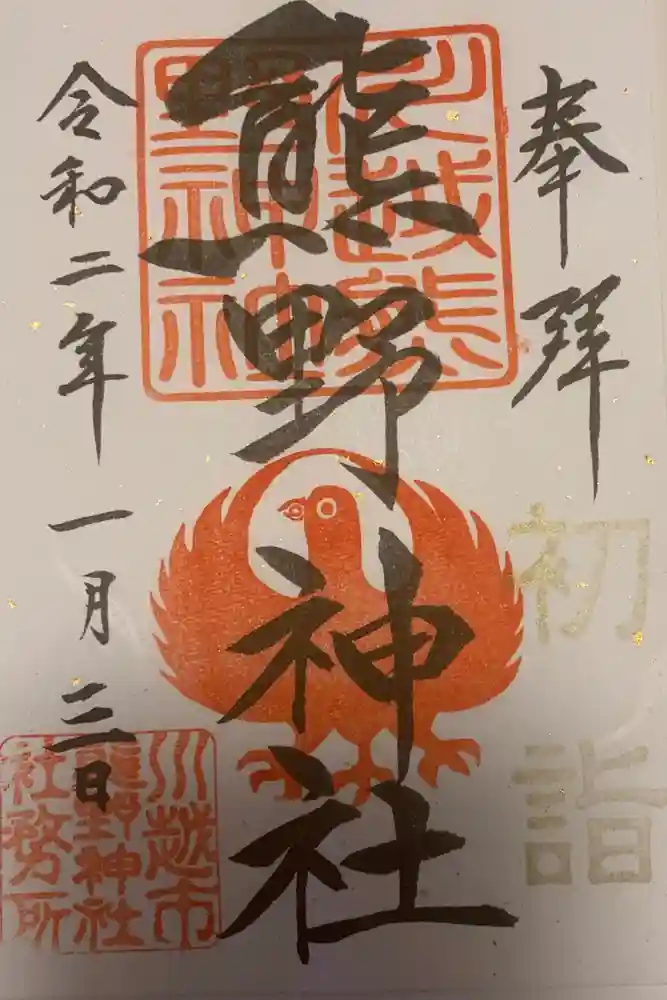 奉拝
初詣
川越熊
野神社
熊野神社
令和二年一月三日
川越市
熊野神社
社務所